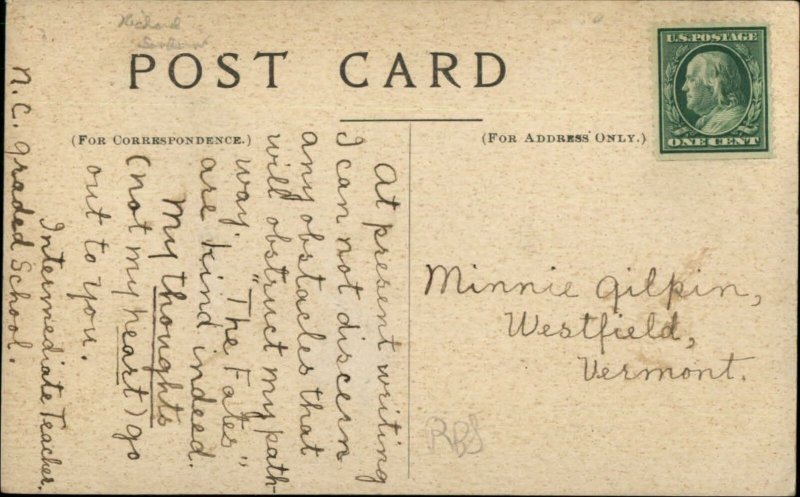 POST CARD
U.S. POSTAGE
ONE CENT
(FOR CORRESPONDENCE.)
(FOR ADDRESS ONLY.)
At present writing
I can not discern
any obstacles that
will obstruct my path-
way. "The Fates"
are kind indeed.
My thoughts
(not my heart) go
out to you.
Intermediate Teacher.
N.C. Graded School.
Minnie Gilpin,
Westfield,
Vermont.
RBS